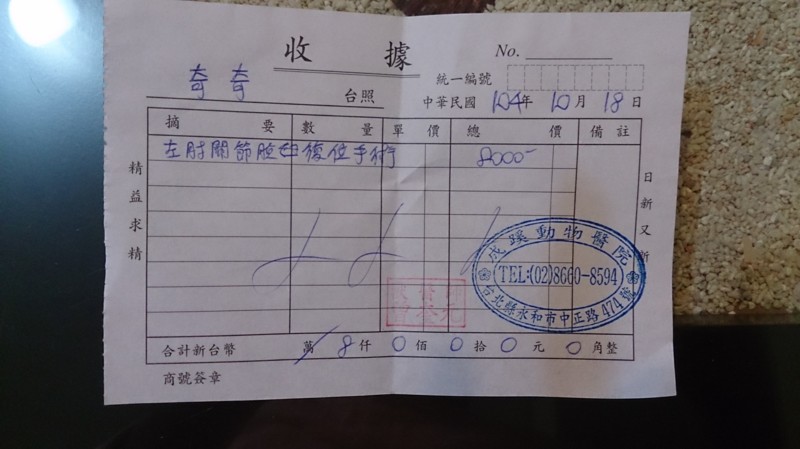 收據
No.
統一編號
奇奇 台照
中華民國 104年 10月 18日
摘要 數量 單價 總價 備註
左肘關節脫臼復位手術 8000-
精益求精
日新又新
成蹊動物醫院
TEL:(02)8660-8594
台北縣永和市中正路474號
合計新台幣 萬 8仟 0佰 0拾 0元 0角整
商號簽章